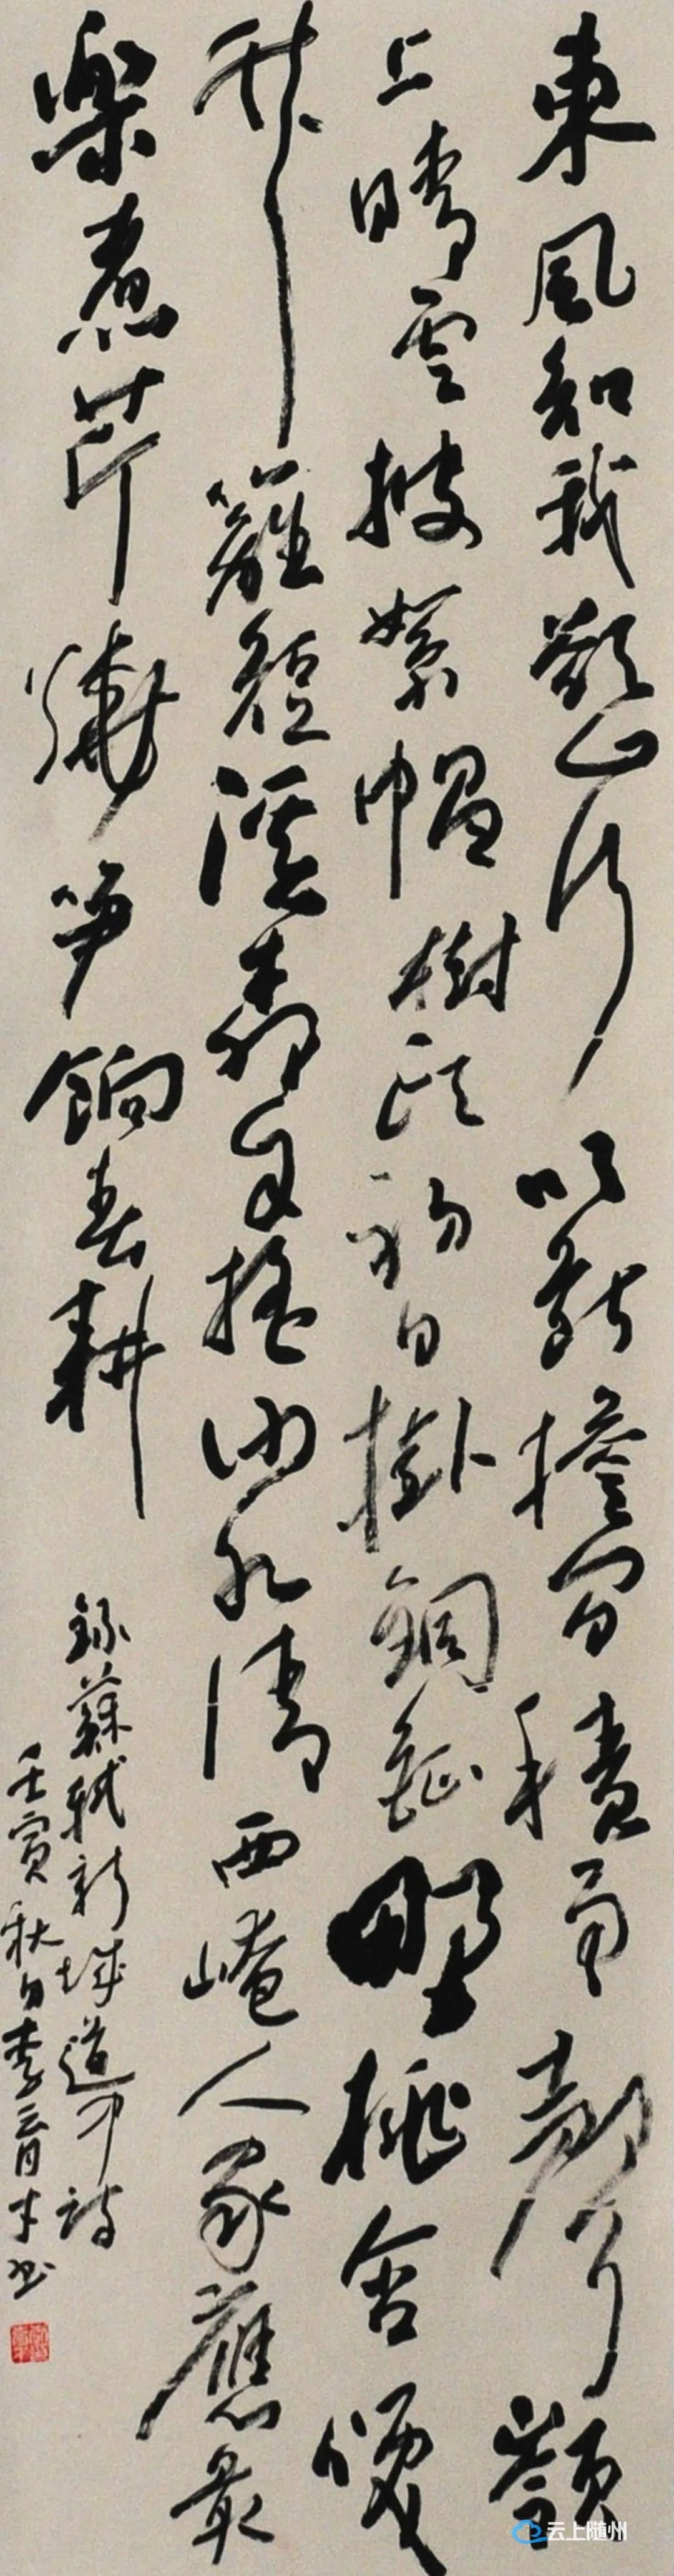 東風知我欲山行吹斷檐間積雨聲嶺
上晴雲披絮帽樹頭初日掛銅鉦野桃含咲
竹籬短溪柳自搖沙水清西崦人家應最
樂煮芹燒笋餉春耕
錄蘇軾新城道中詩
壬寅秋日李育才书
云上随州